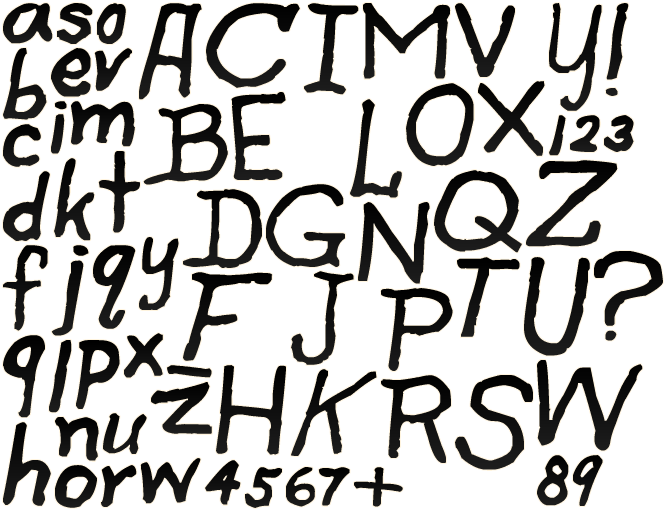 aso ACIMVY!
bev
cim BE LOX123
dkt DGNQZ
fjqy FJPTU?
glpx
nu zHKRSW
horw4567+ 89